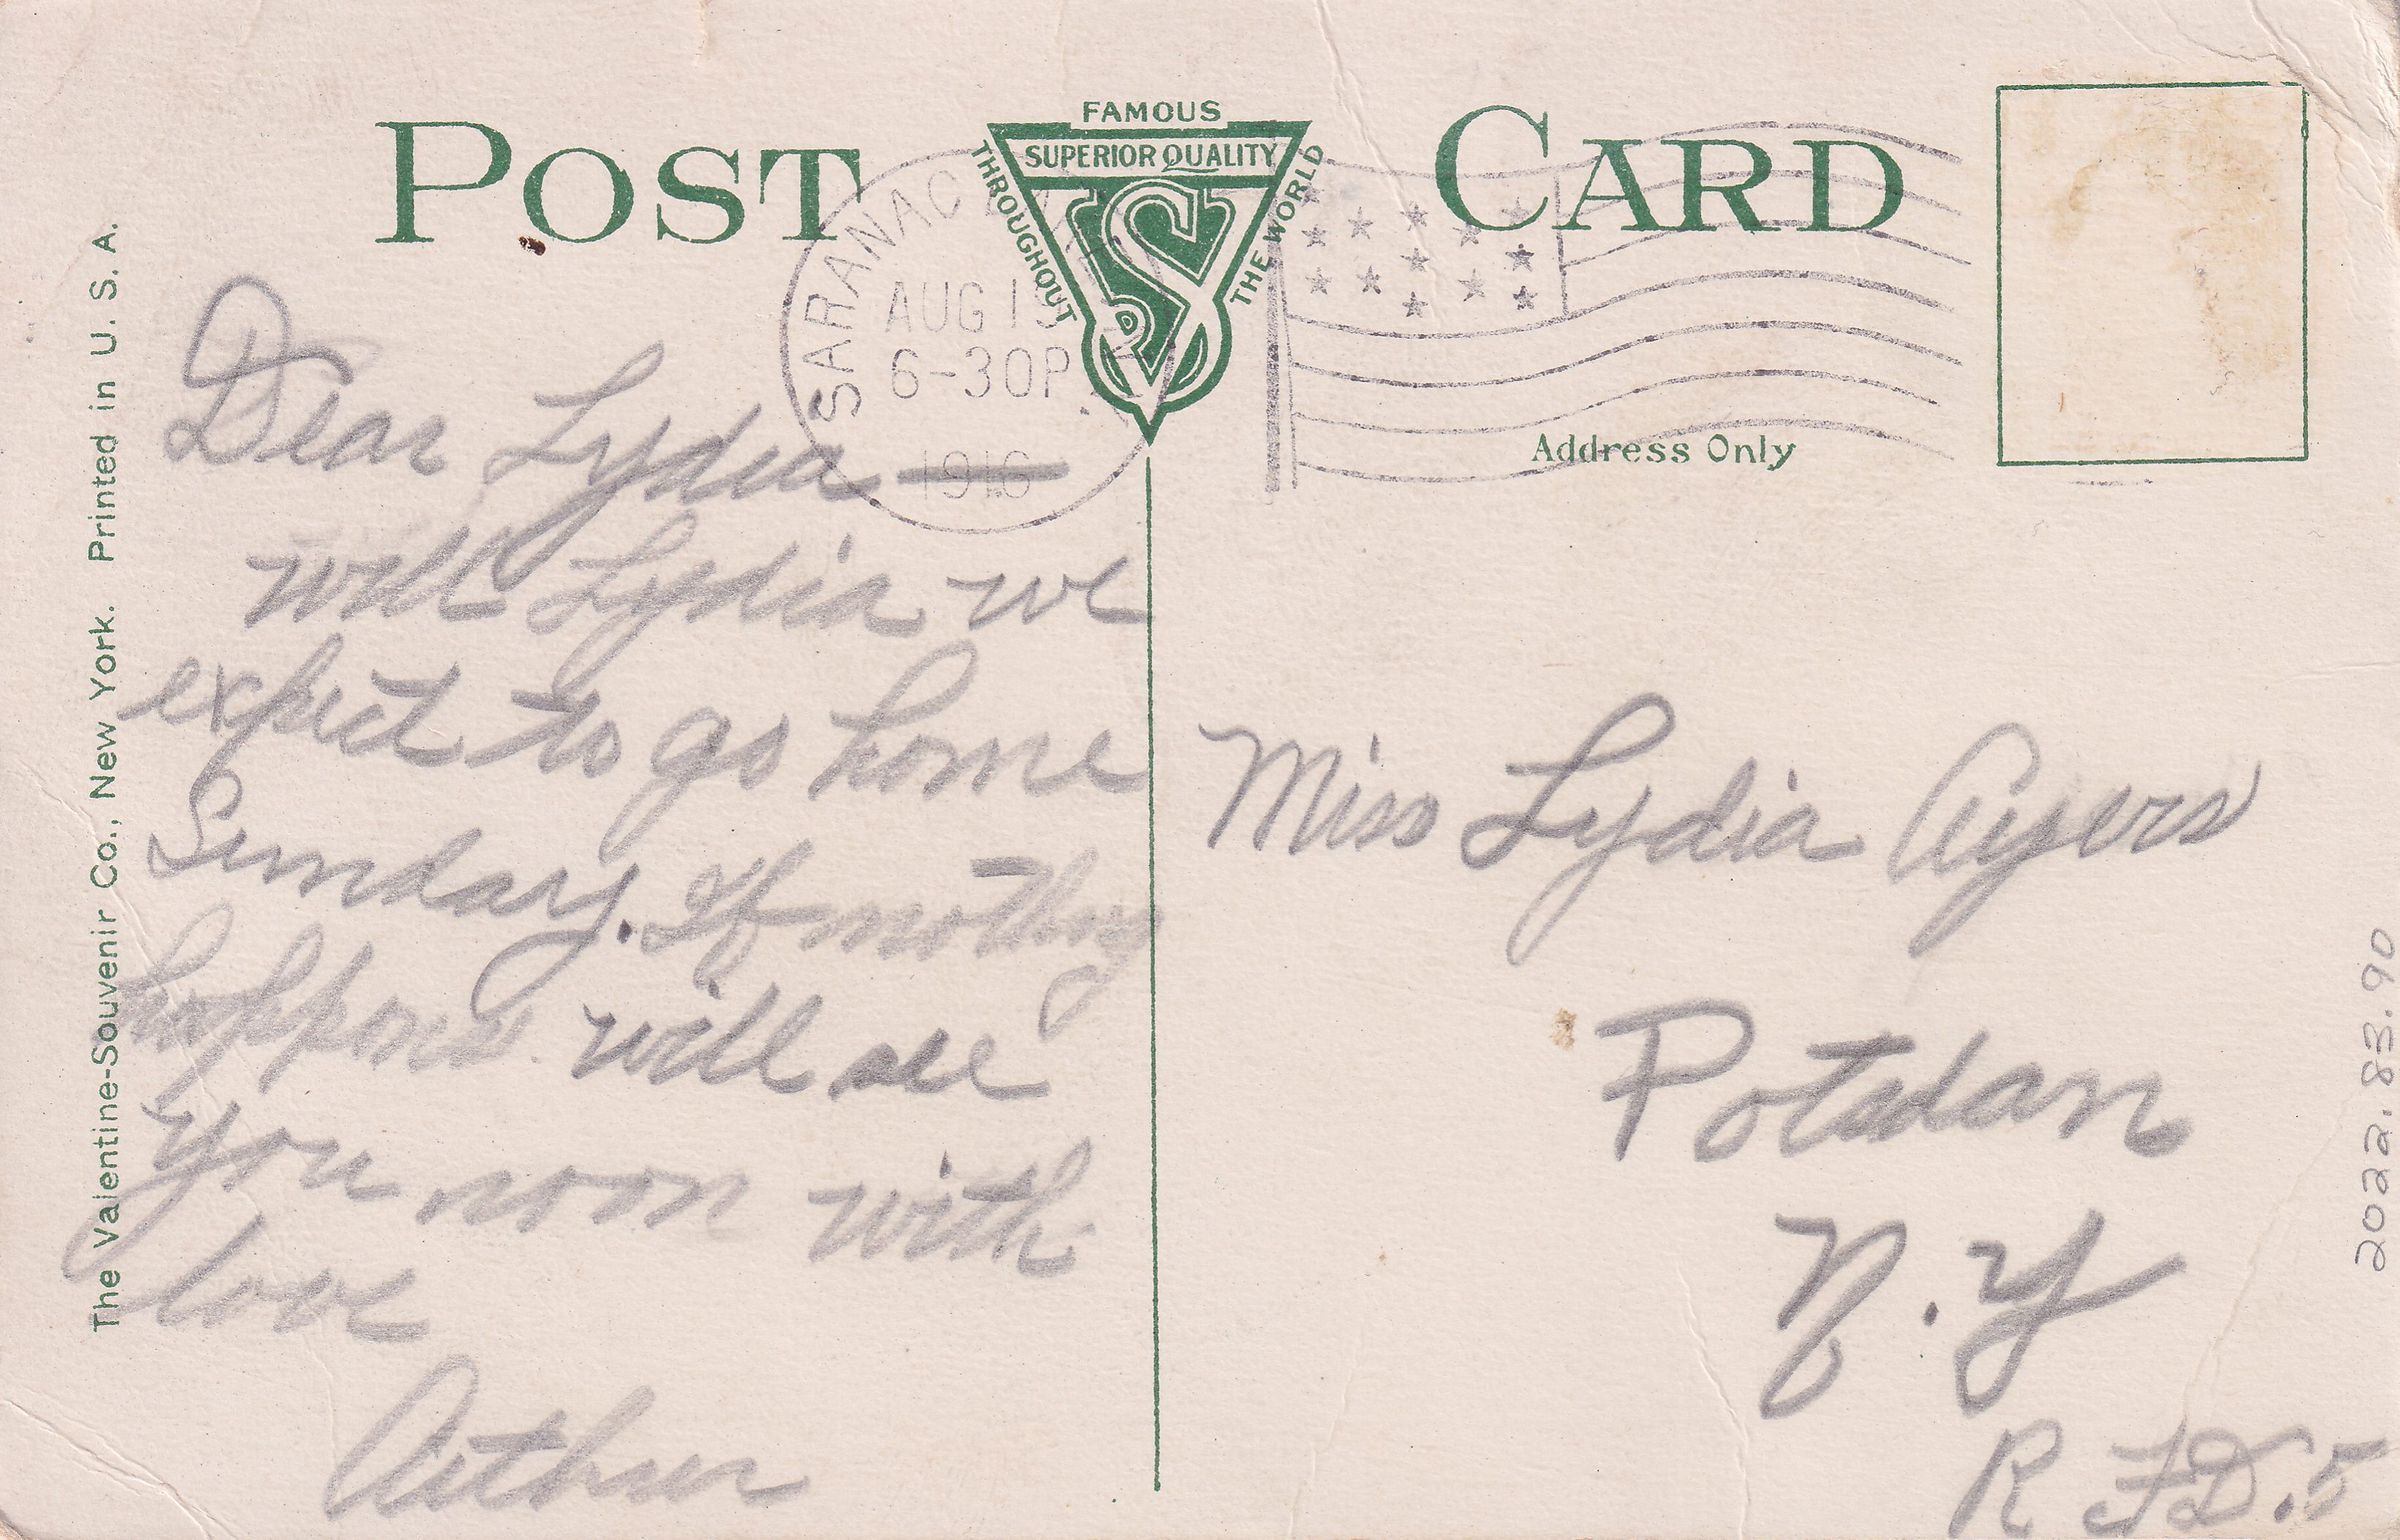 POST CARD
FAMOUS
SUPERIOR QUALITY
THROUGHOUT
THE WORLD
SARANAC
AUG 15
6-30P
1916
Address Only
Dear Lydia —
will Lydia we
expect to go home
Sunday. If nothing
happens will see
you soon with
love
Arthur
Miss Lydia Ayers
Potsdam
N.Y
R F D. 5
The Valentine-Souvenir Co., New York. Printed in U. S. A.
2022.83.90